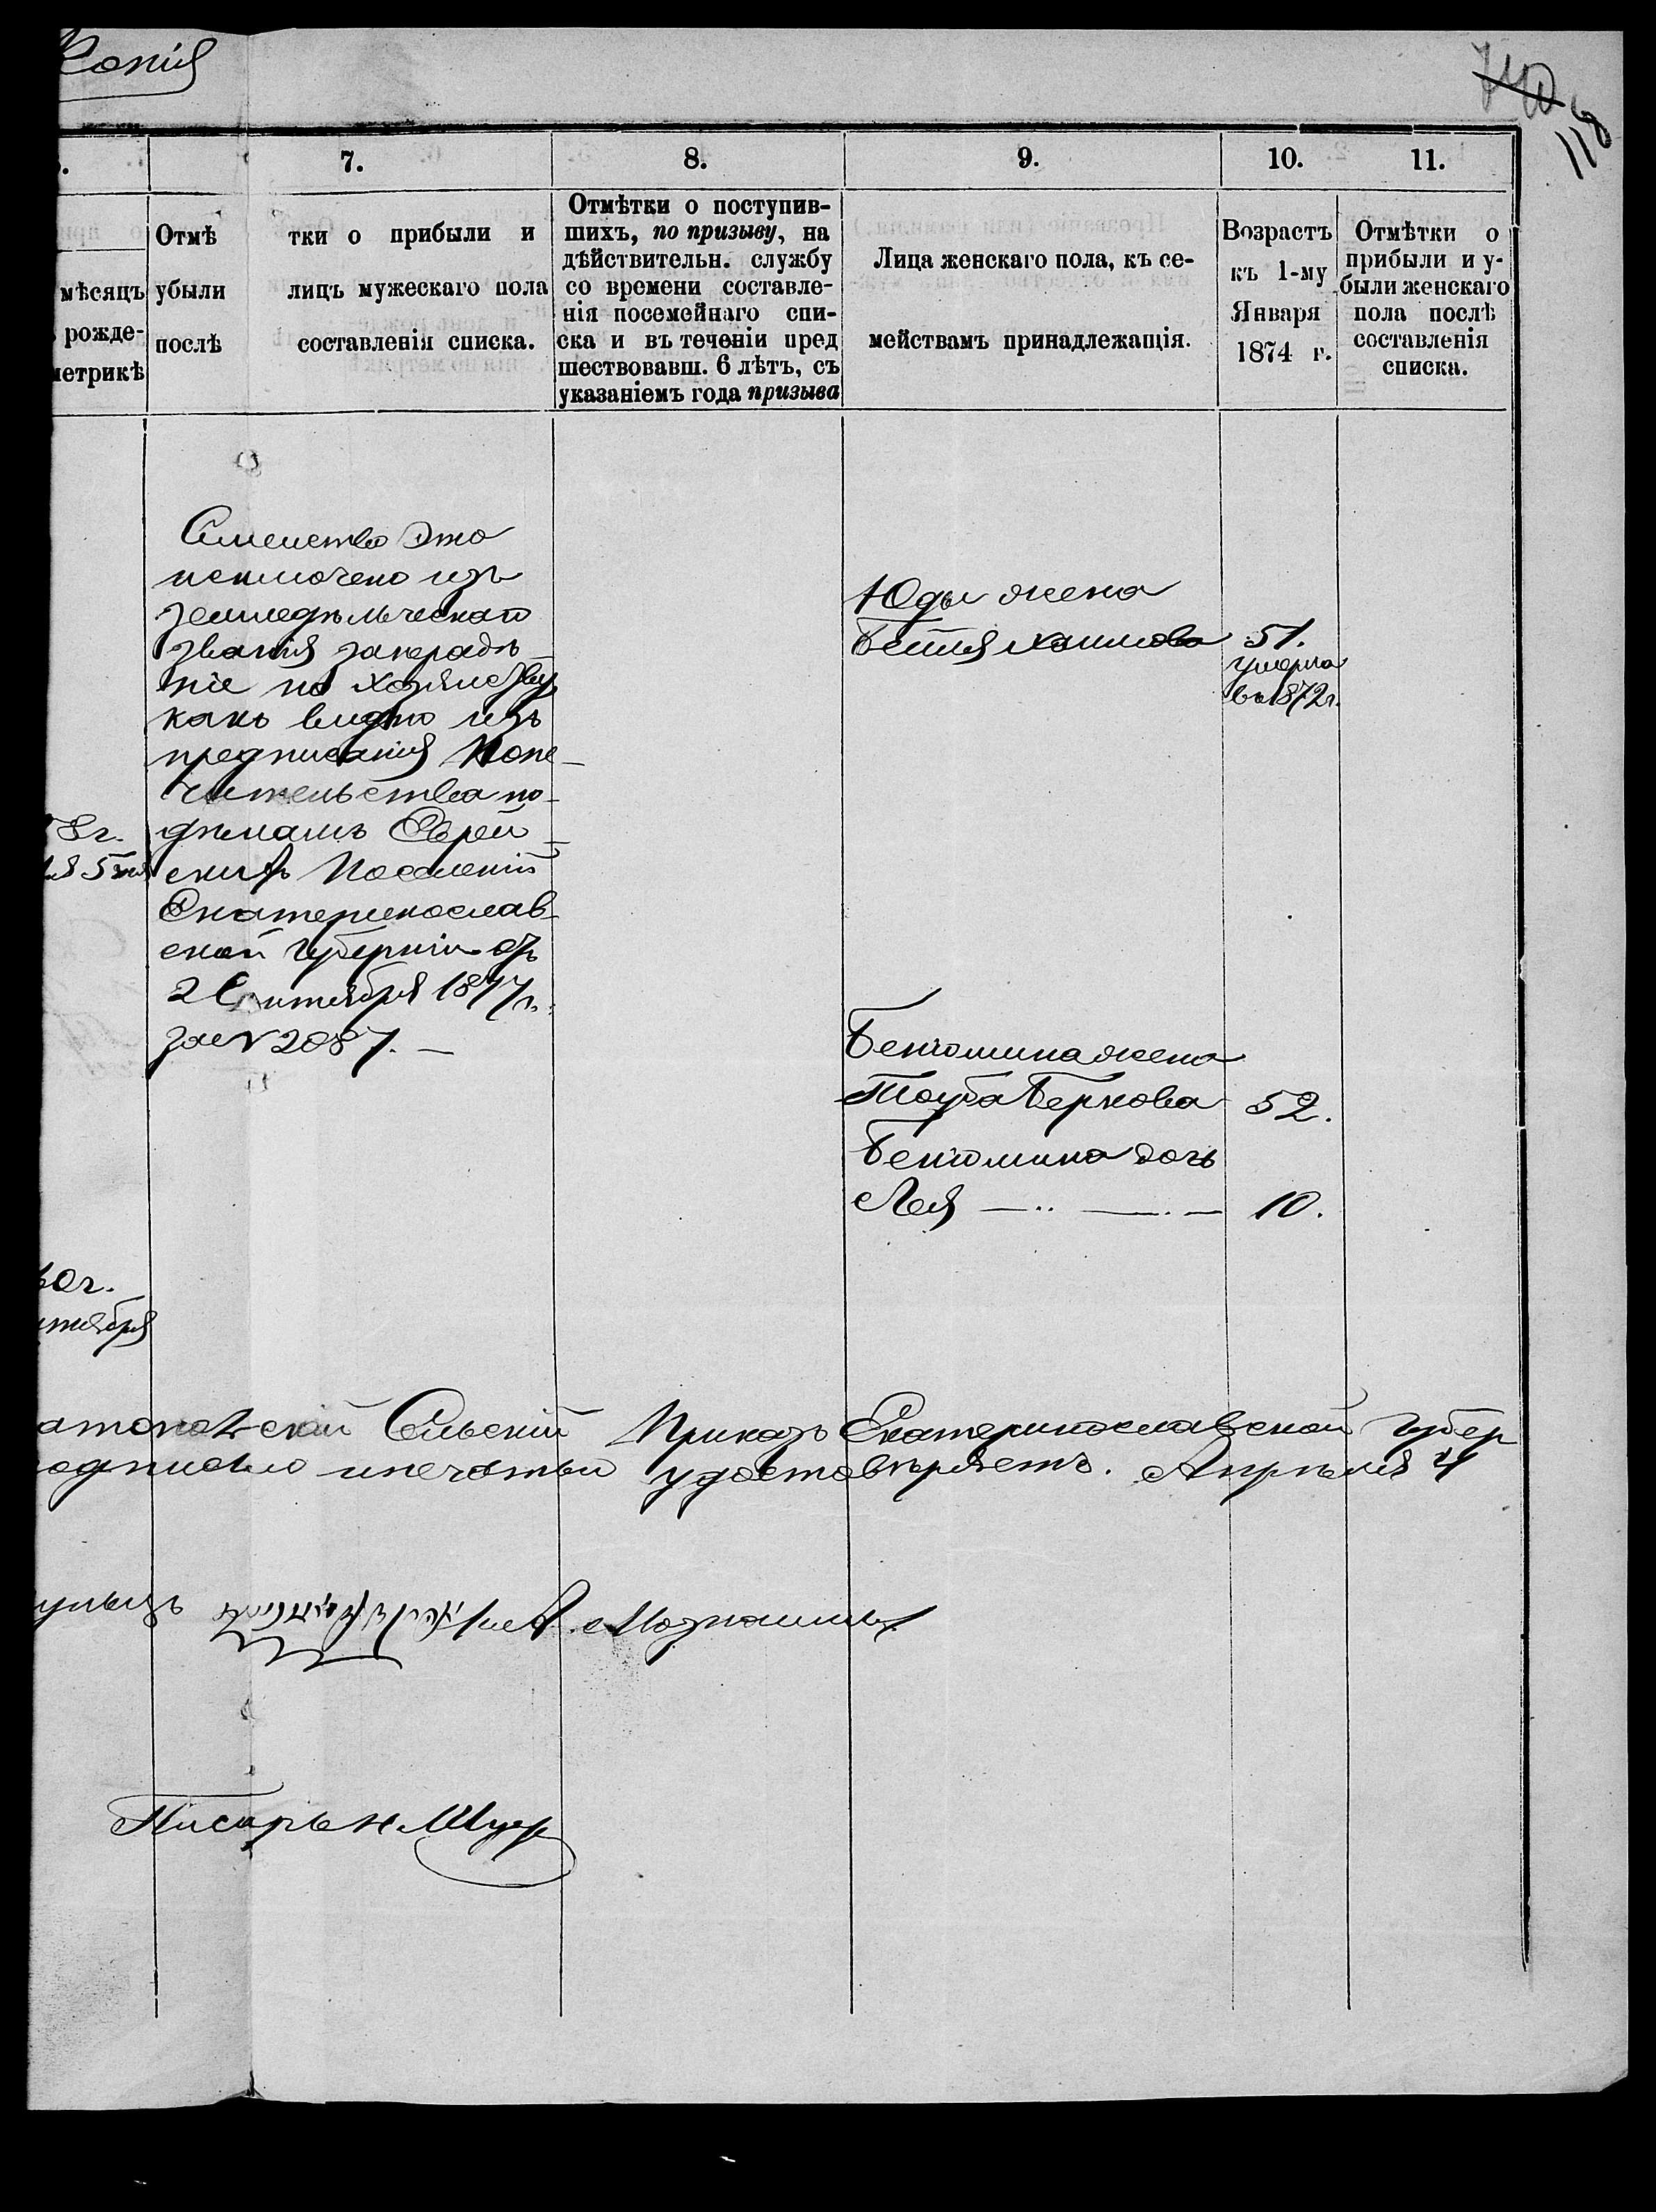 Копія
118
7.
8.
9.
10.
11.
мѣсяцъ
рожде-
метрикѣ
Отмѣтки о прибыли и
убыли лицъ мужескаго пола
послѣ составленія списка.
Отмѣтки о поступив-
шихъ, по призыву, на
дѣйствительн. службу
со времени составле-
нія посемейнаго спи-
ска и въ теченіи пред
шествовавш. 6 лѣтъ, съ
указаніемъ года призыва
Лица женскаго пола, къ се-
мействамъ принадлежащія.
Возрастъ
къ 1-му
Января
1874 г.
Отмѣтки о
прибыли и у-
были женскаго
пола послѣ
составленія
списка.
Семейство это
исключено изъ
земледѣльческаго
званія за нерадѣ-
ніе по хозяйству
какъ видно изъ
предписанія Попе-
чительства по-
дѣламъ Еврей-
скихъ Поселеній
Екатеринослав-
ской губерніи отъ
2 Сентября 1877 г.
за № 2087. —
8 г.
Юды жена
Бейля 51.
умерла
въ 1872 г.
Беніомина жена
Тауба Беркова 52.
Беніомина дочь
Лея — .. — . — 10.
0 г.
нтября
Сельскій Приказъ Екатеринославской губер
одписью и печатью удостовѣряетъ. Апрѣля 4
ульцъ
Писарь Н. Шуер